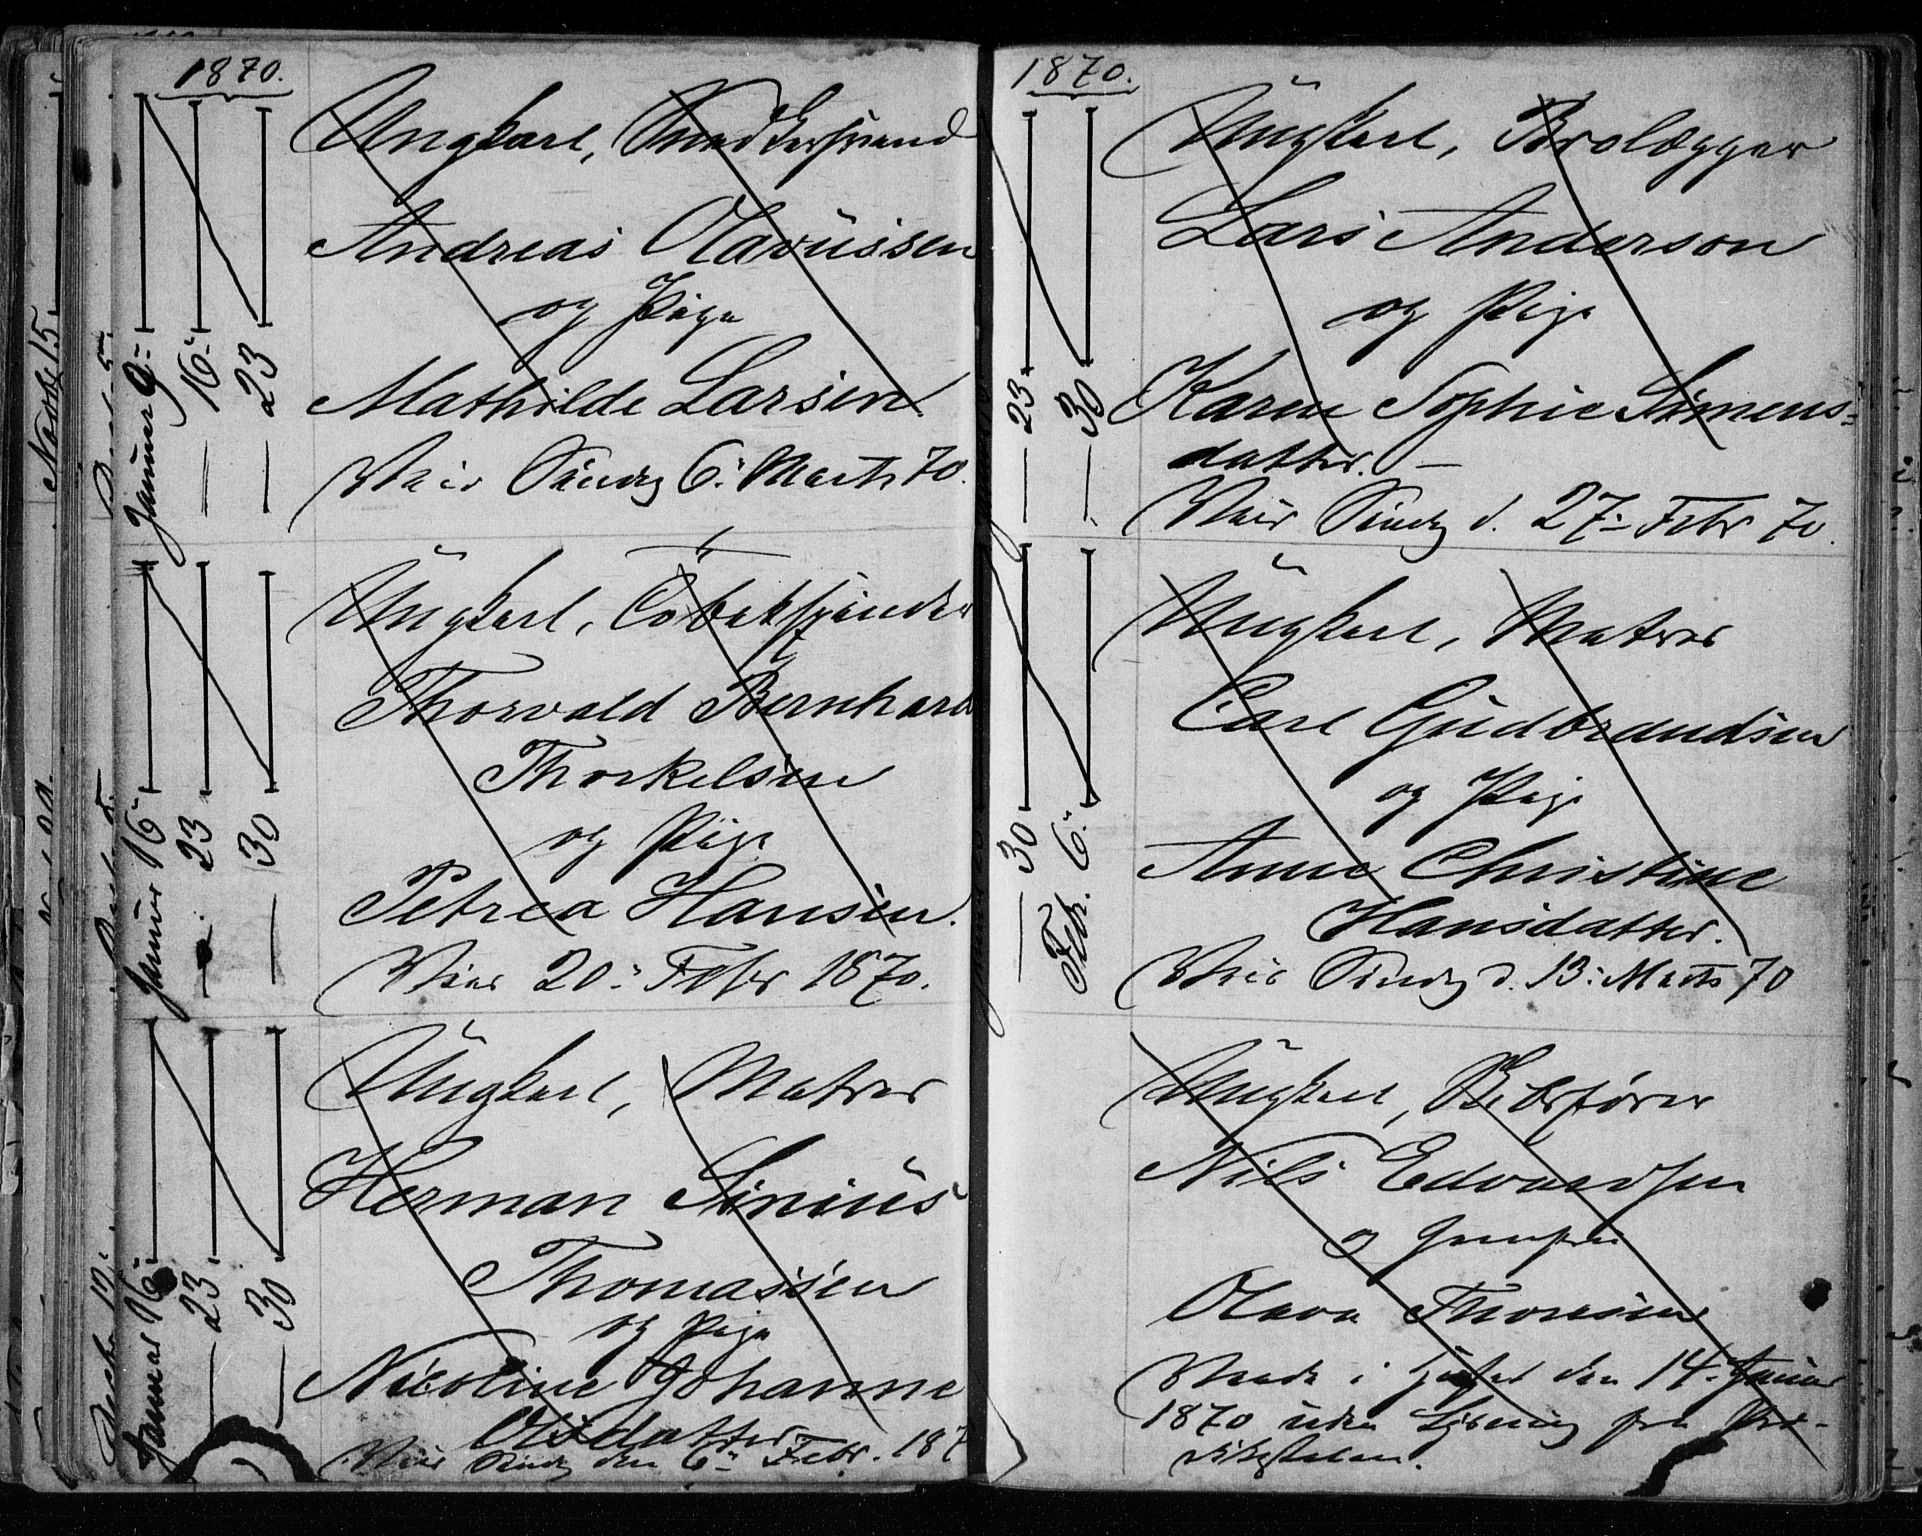 1870.
Januar 9.
16.
23
Ungkarl, Snedkersvend
Andreas Olavüssen
og Pige
Mathilde Larsen
Viet Søndag 6. Marts 70.
Januar 16.
23
30
Ungkarl,
Thorvald Bernhard
Thorkelsen
og Pige
Petrea Hansen.
Viet 20. Febr 1870.
Januar 16.
23
30
Ungkarl, Matros
Herman Sinius
Thomassen
og Pige
Nicoline Johanne
Olsdatter
Viet Søndag den 6. Febr. 187
1870.
23
30
Ungkarl, Brolægger
Lars Anderson
og Pige
Karen Sophie Simens-
datter. –
Viet Søndag d. 27. Febr 70.
30
Febr. 6.
Ungkarl, Matros
Carl Gudbrandsen
og Pige
Anne Christine
Hansdatter.
Viet Søndag d. 13. Marts 70
Ungkarl,
Nils Edvardsen
og
Olava Thoresen
Viede i Huset den 14. Januar
1870 uden Lysning fra Præ-
dikestolen.